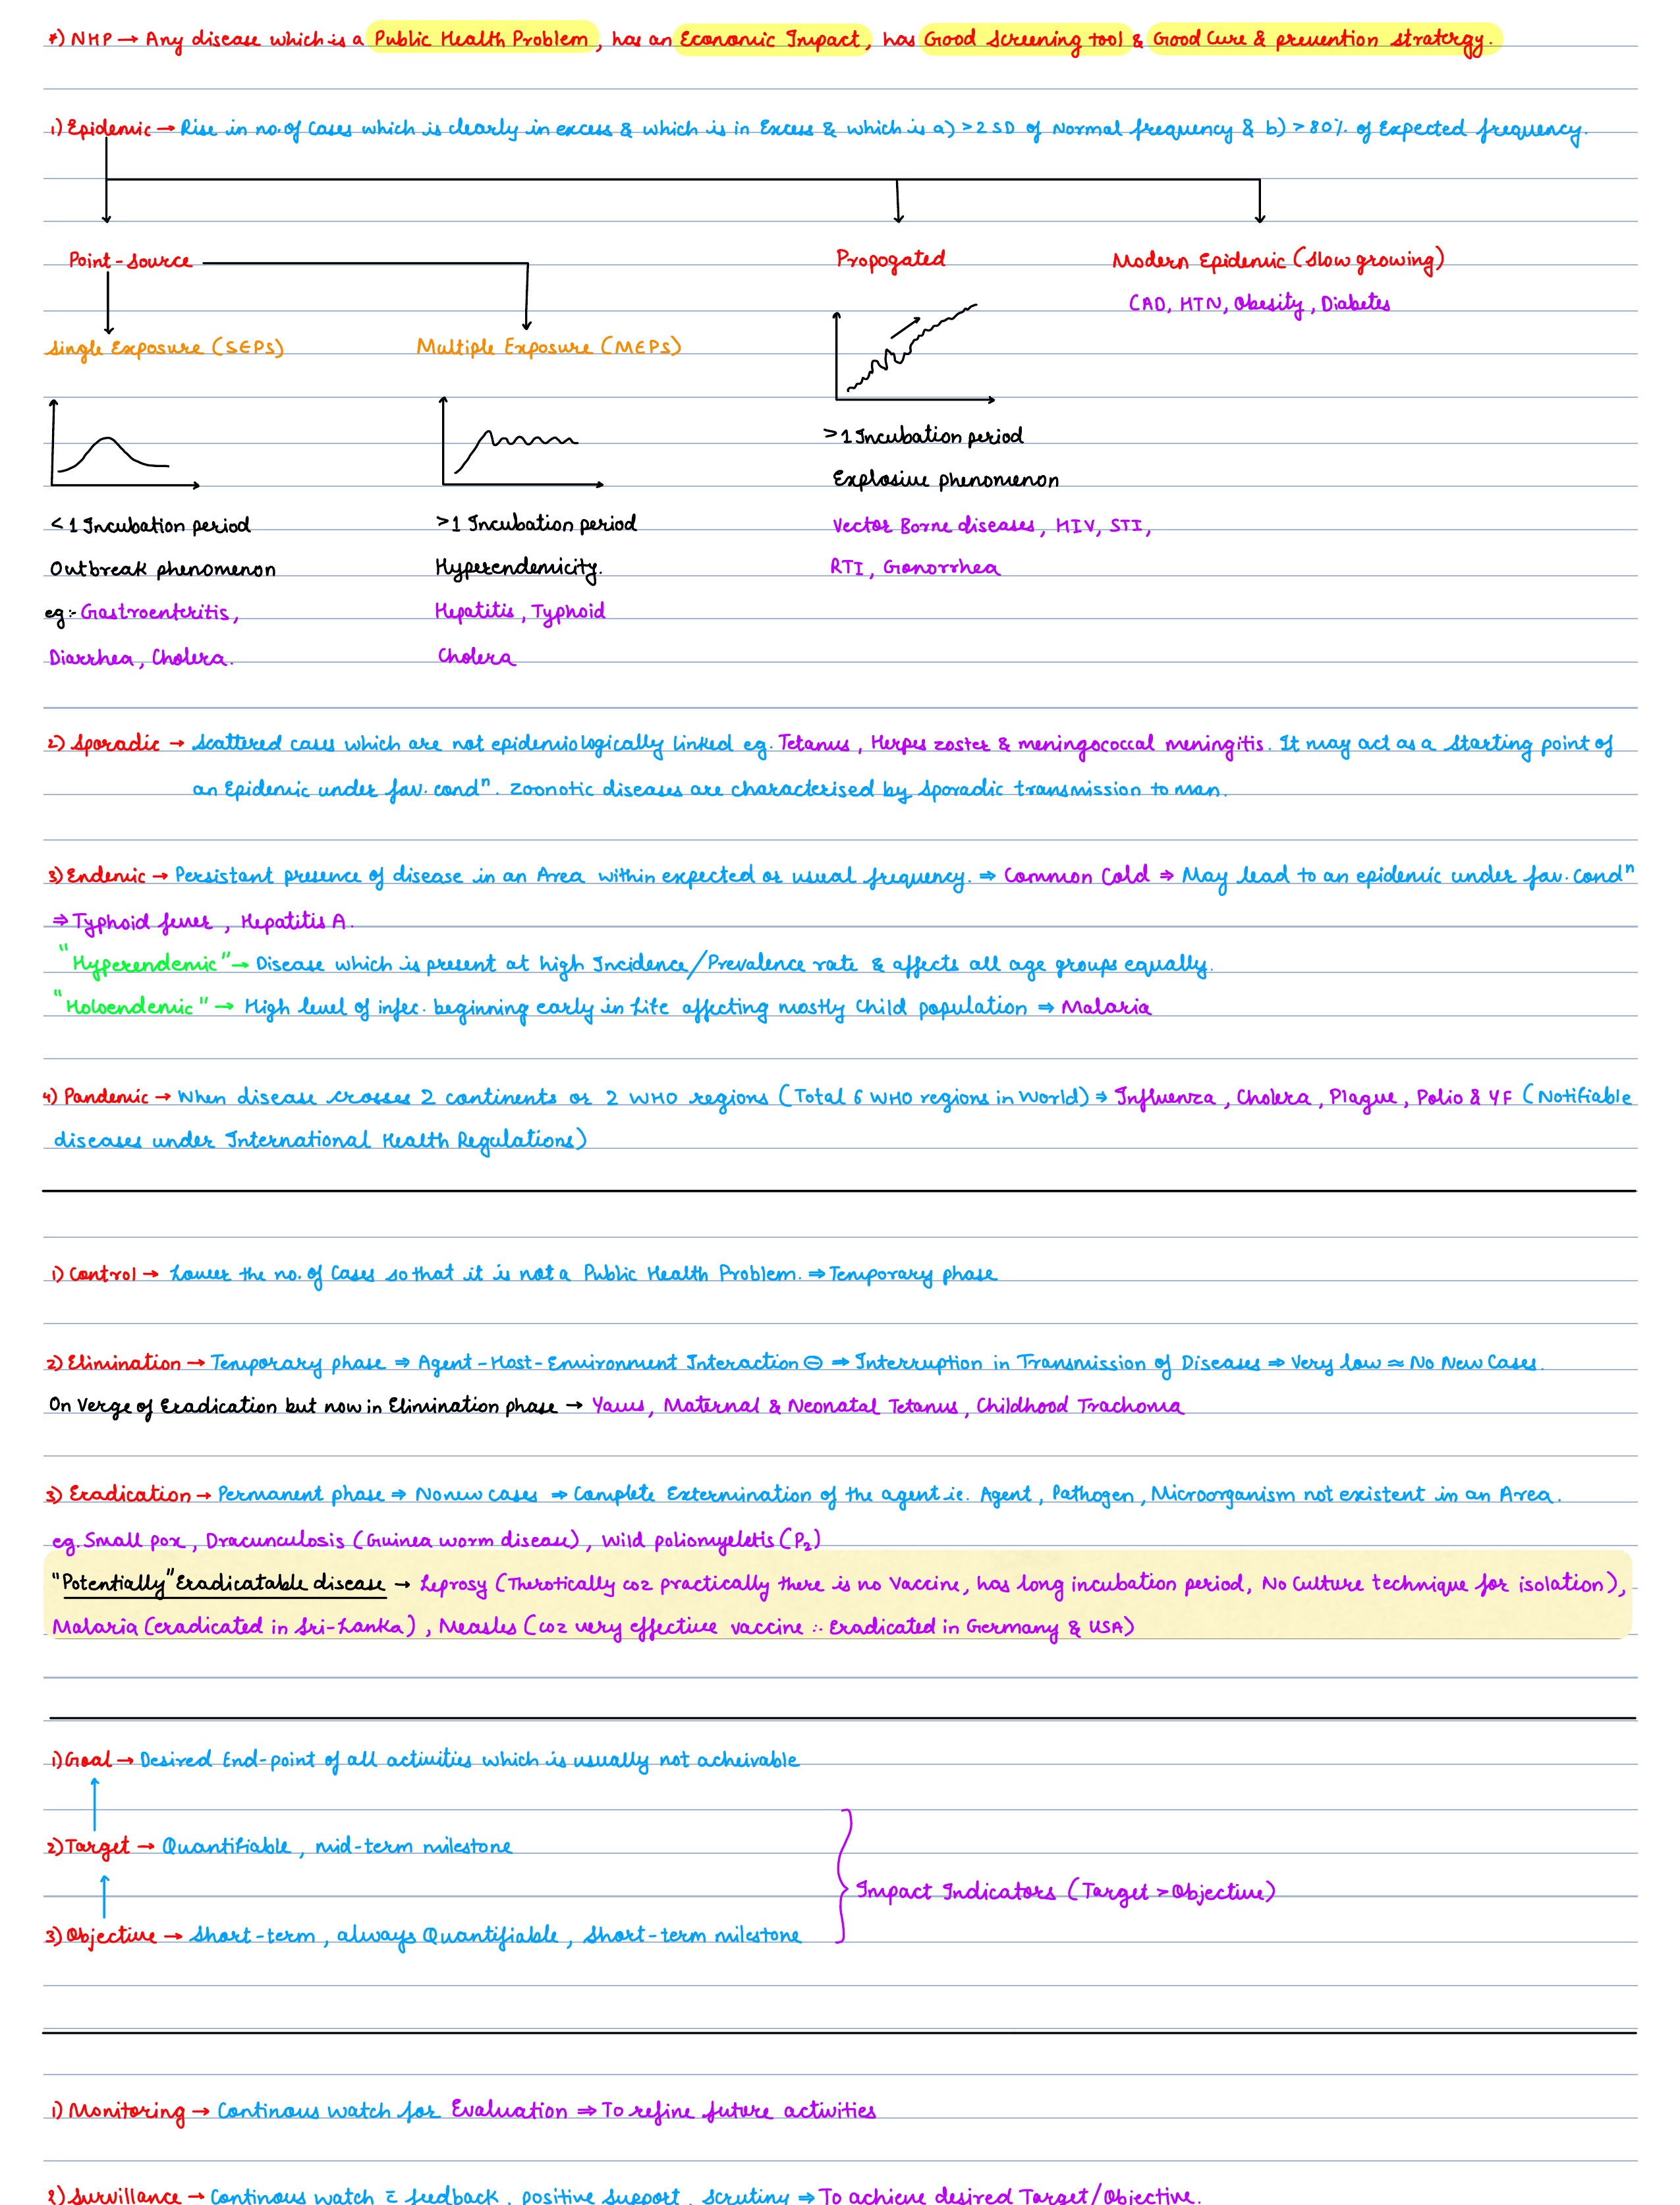 *) NHP → Any disease which is a Public Health Problem, has an Economic Impact, has Good Screening tool & Good Cure & prevention stratergy.
1) Epidemic → Rise in no. of Cases which is clearly in excess & which is in Excess & which is a) >2SD of Normal frequency & b) >80% of Expected frequency.
Point-Source
Propogated
Modern Epidemic (Slow growing)
CAD, HTN, Obesity, Diabetes
Single Exposure (SEPS)
Multiple Exposure (MEPS)
>1 Incubation period
Explosive phenomenon
Vector Borne diseases, HIV, STI,
RTI, Gonorrhea
<1 Incubation period
Outbreak phenomenon
eg:- Gastroenteritis,
Diarrhea, Cholera.
>1 Incubation period
Hyperendemicity.
Hepatitis, Typhoid
Cholera
2) Sporadic → Scattered cases which are not epidemiologically linked eg. Tetanus, Herpes zoster & meningococcal meningitis. It may act as a Starting point of
an Epidemic under fav. condⁿ. Zoonotic diseases are characterised by Sporadic transmission to man.
3) Endemic → Persistant presence of disease in an Area within expected or usual frequency. ⇒ Common Cold ⇒ May lead to an epidemic under fav. condⁿ
⇒ Typhoid fever, Hepatitis A.
"Hyperendemic" → Disease which is present at high Incidence/Prevalence rate & affects all age groups equally.
"Holoendemic" → High level of infec. beginning early in Life affecting mostly Child population ⇒ Malaria
4) Pandemic → When disease crosses 2 continents or 2 WHO regions (Total 6 WHO regions in World) ⇒ Influenza, Cholera, Plague, Polio & YF (Notifiable
diseases under International Health Regulations)
1) Control → Lower the no. of Cases so that it is not a Public Health Problem. ⇒ Temporary phase
2) Elimination → Temporary phase ⇒ Agent-Host-Environment Interaction ⊖ ⇒ Interruption in Transmission of Diseases ⇒ Very low ≈ No New Cases.
On Verge of Eradication but now in Elimination phase → Yaws, Maternal & Neonatal Tetanus, Childhood Trachoma
3) Eradication → Permanent phase ⇒ No new cases ⇒ Complete Extermination of the agent ie. Agent, Pathogen, Microorganism not existent in an Area.
eg. Small pox, Dracunculosis (Guinea worm disease), Wild poliomyeletis (P₂)
"Potentially" Eradicatable disease → Leprosy (Therotically coz practically there is no Vaccine, has long incubation period, No Culture technique for isolation),
Malaria (eradicated in Sri-Lanka), Measles (coz very effective vaccine ∴ Eradicated in Germany & USA)
1) Goal → Desired End-point of all activities which is usually not acheivable
2) Target → Quantifiable, mid-term milestone
Impact Indicators (Target > Objective)
3) Objective → Short-term, always Quantifiable, Short-term milestone
1) Monitoring → Continous watch for Evaluation ⇒ To refine future activities
2) Survillance → Continous watch c̄ feedback, positive Support, Scrutiny ⇒ To achieve desired Target/Objective.